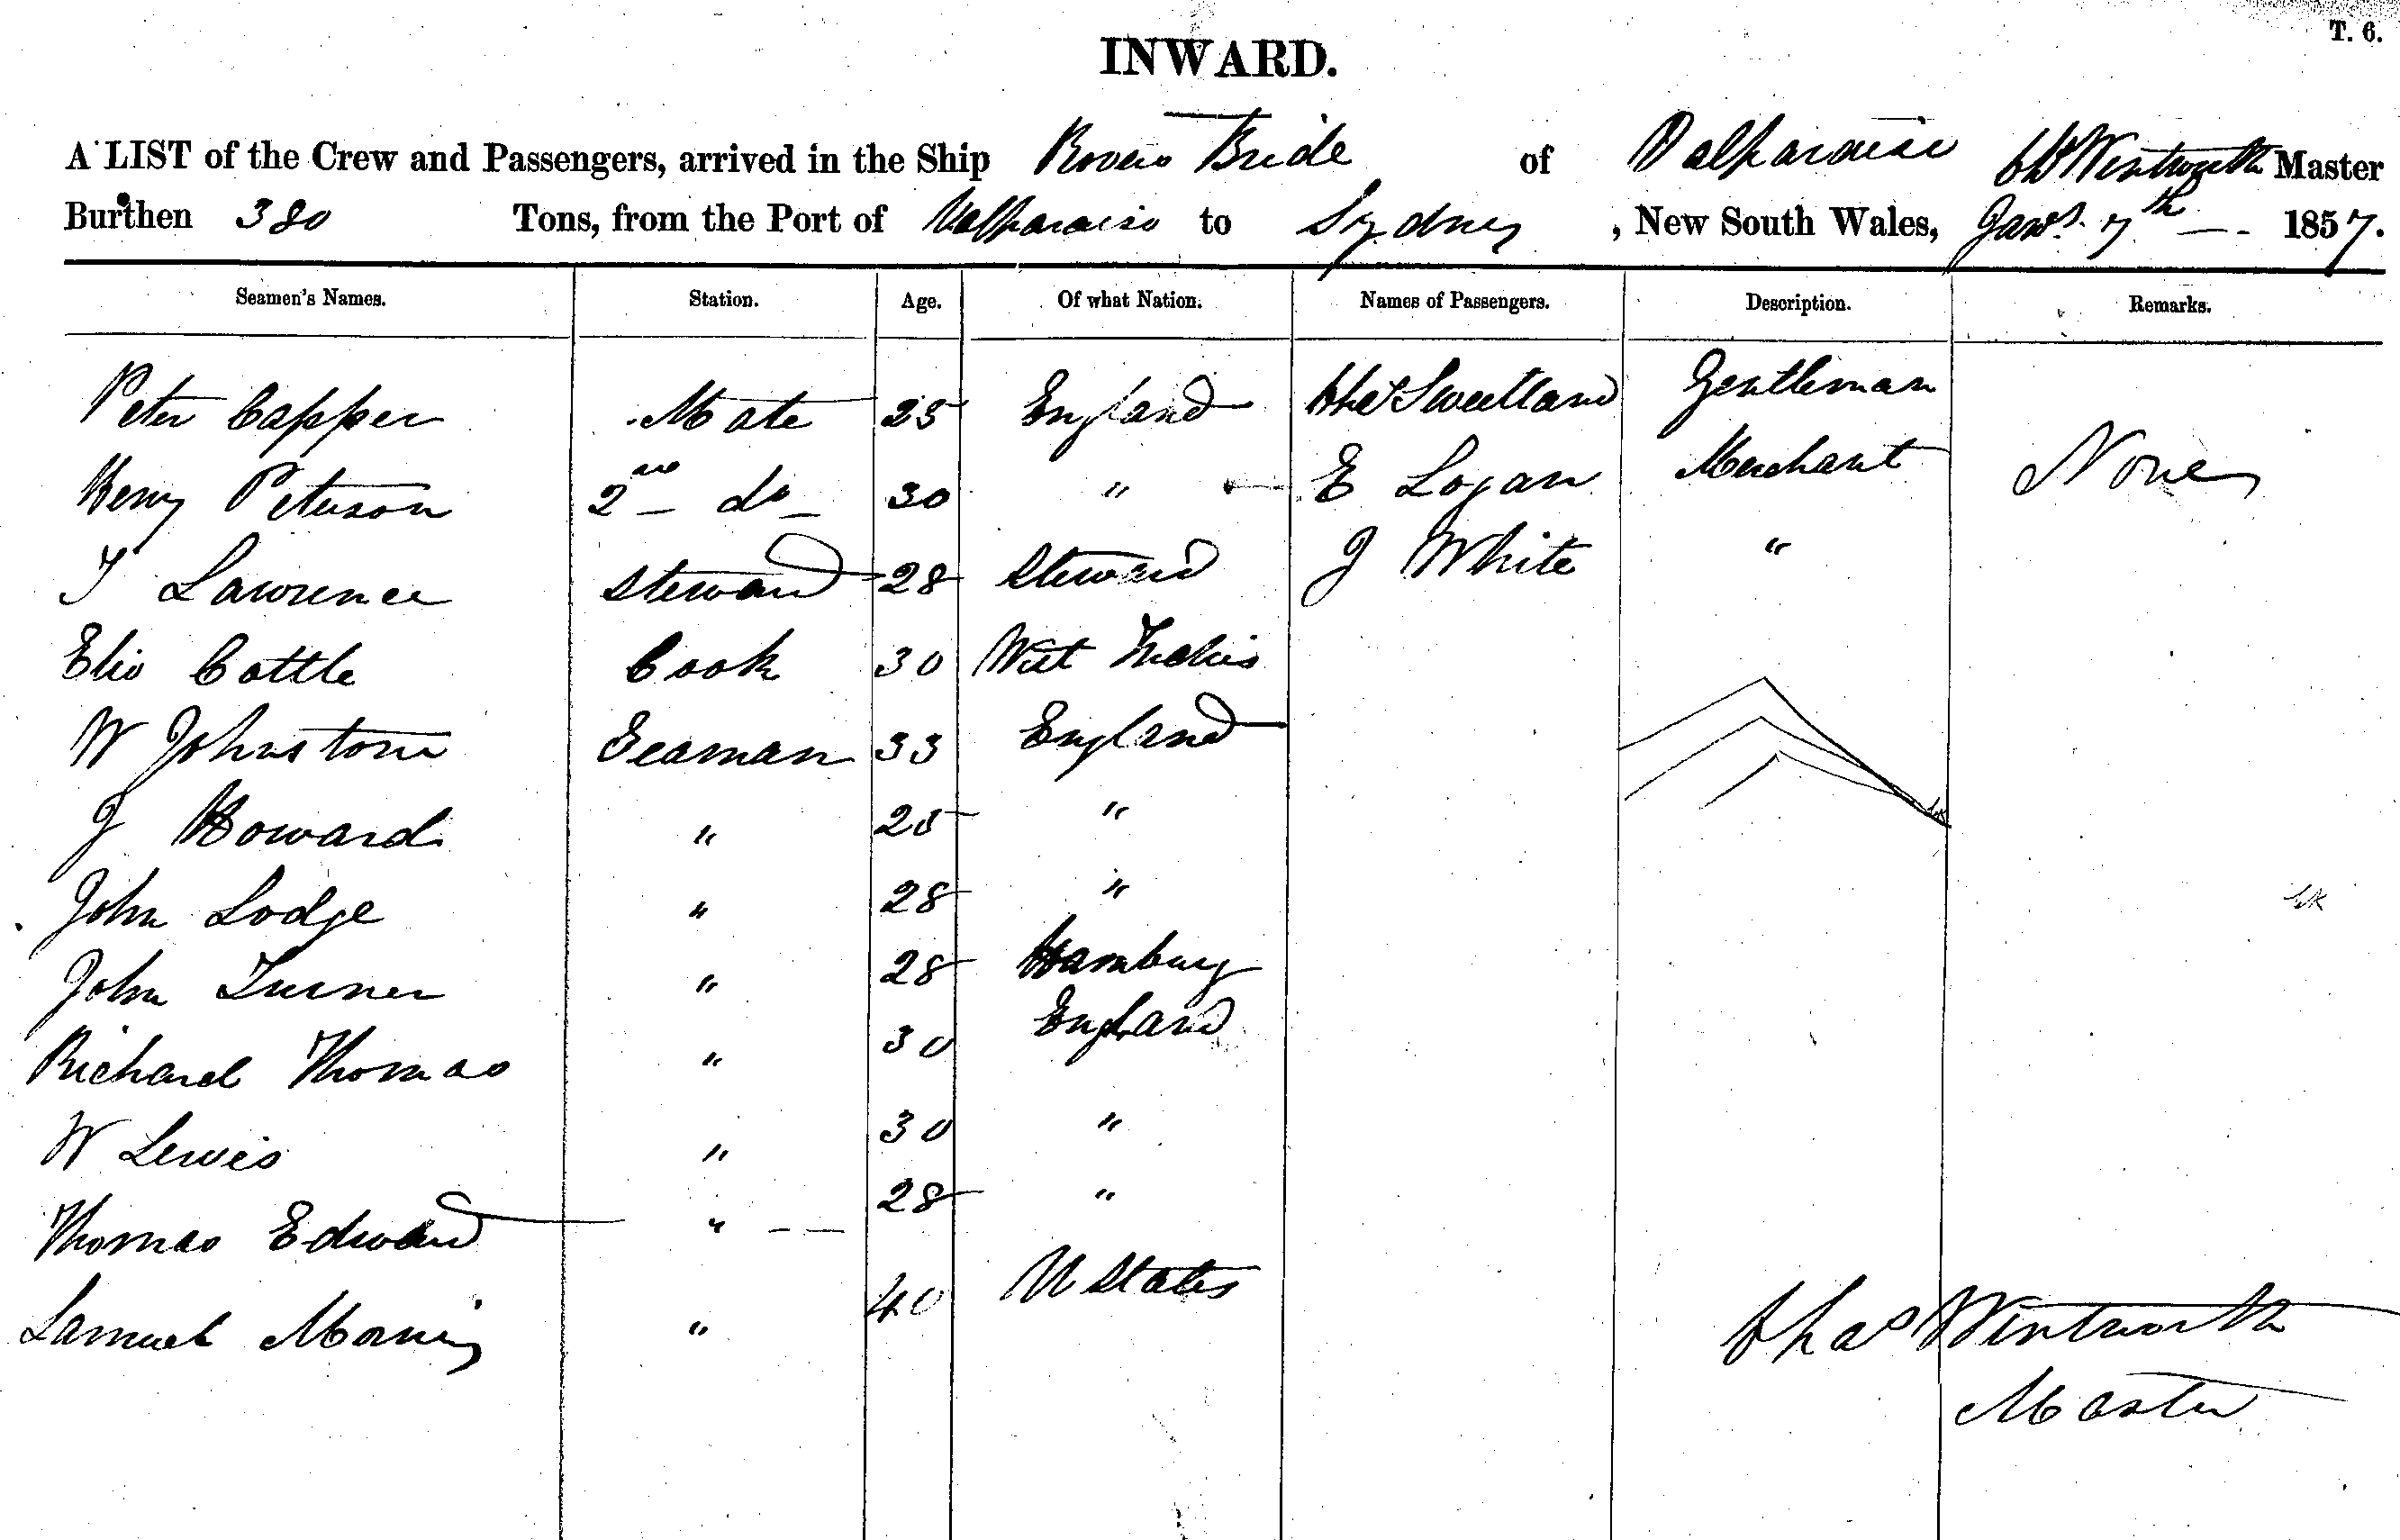 T. 6.
INWARD.
A LIST of the Crew and Passengers, arrived in the Ship Rovers Bride of Valparaiso Chs Wentworth Master
Burthen 380 Tons, from the Port of Valparaiso to Sydney, New South Wales, Jany. 7th 1857.
Seamen's Names. Station. Age. Of what Nation. Names of Passengers. Description. Remarks.
Peter Capper Mate 25 England Sweetland Gentleman
Henry Peterson 2nd do 30 " E Logan Merchant None
T Lawrence Steward 28 Steward J White "
Cattle Cook 30 West Indies
W Johnstone Seaman 33 England
J Howard " 25 "
John Lodge " 28 "
John Turner " 28 Hamburg
Richard Thomas " 30 England
W Lewis " 30 "
Thomas Edward " 28 "
Samuel " 40 U States
Chas Wentworth
Master